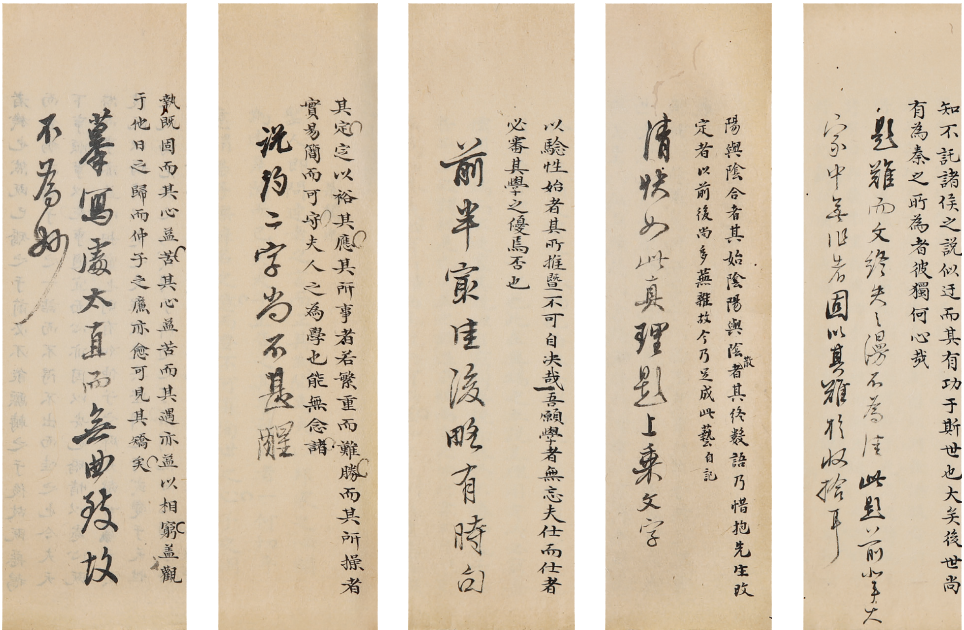 知不託諸侯之說似迂而其有功于斯世也大矣後世尚
有為秦之所為者彼獨何心哉
題難而文終失之漫不為佳此題前半大
家中無作者固以其難於收拾耳
陽與陰合者其始陰陽與陰散者其終數語乃惜抱先生改
定者以前後尚多蕪雜故今乃足成此藝自記
清快如此真理題上乘文字
以驗性始者其所推暨不可自決哉吾願學者無忘夫仕而仕者
必審其學之優焉否也
前半最佳後略有時句
其定定以裕其應其所事者若繁重而難勝而其所操者
實易簡而可守夫人之為學也能無念諸
說約二字尚不甚醒
執既固而其心益苦其心益苦而其遇亦益以相窮蓋觀
于他日之歸而仲子之廉亦愈可見其矯矣
摹寫處太直而無曲致故
不為妙